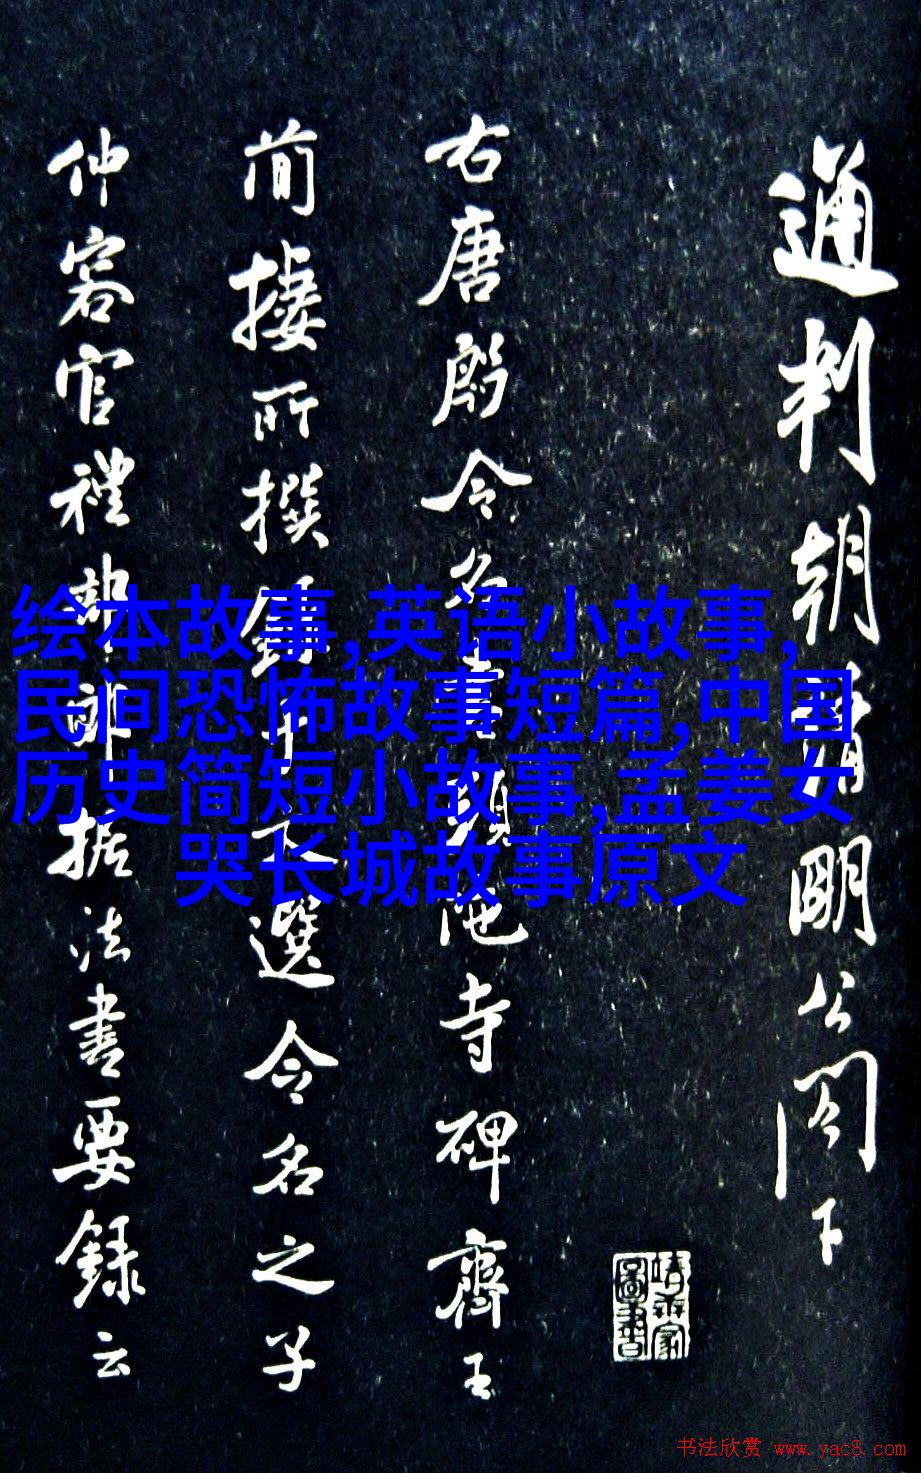 通判朝明公閤下
右唐殷令名書頭陁寺碑齊王
簡棲所撰錄于文選令名之子
仲容官禮部郎據法書要録云
绘本故事,英语小故事,
民间恐怖故事短篇,中国
历史简短小故事,孟姜女
哭长城故事原文
书法欣赏 www.yac8.com